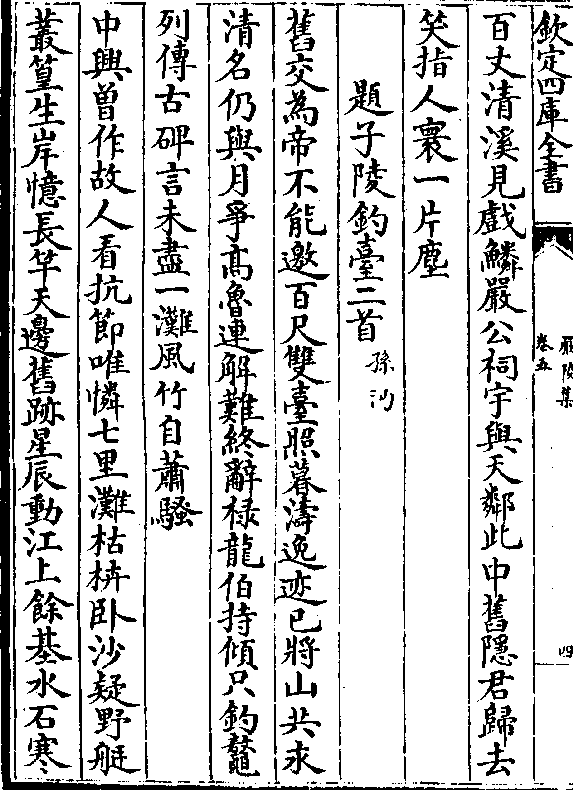 欽定四庫全書
嚴陵集
卷五
四
百丈清溪見戲鱗嚴公祠宇與天鄰此中舊隱君歸去
笑指人寰一片塵
題子陵釣臺二首
孫沔
舊交為帝不能邀百尺雙臺照暮濤逸迹已將山共永
清名仍與月爭髙魯連解難終辭祿龍伯持傾只釣鼇
列傳古碑言未盡一灘風竹自蕭騷
中興曽作故人看抗節唯憐七里灘枯枿卧沙疑野艇
叢篁生岸憶長竿天邊舊跡星辰動江上餘基水石寒